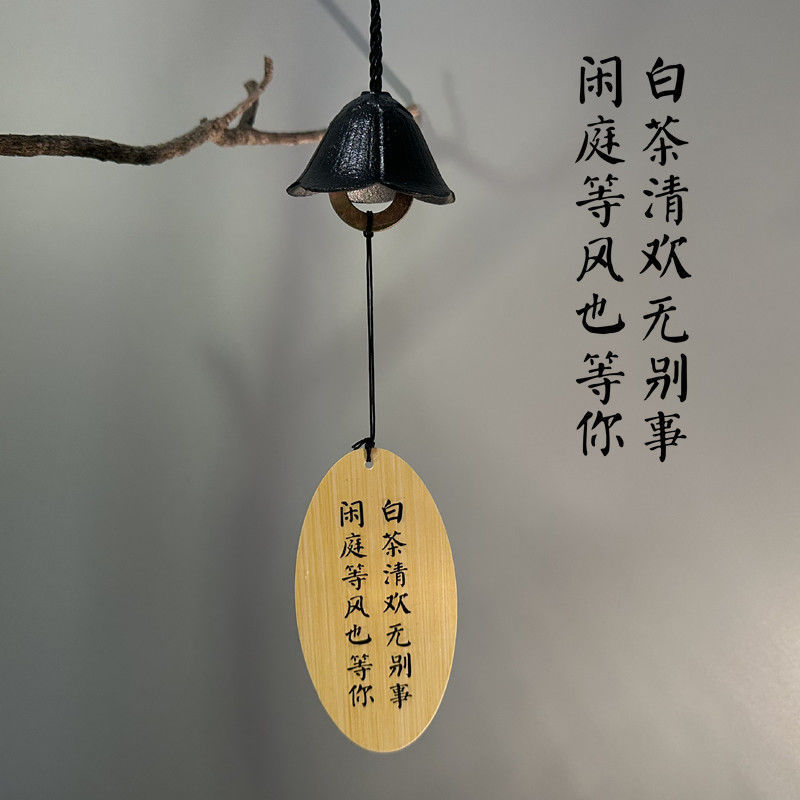 白茶清欢无别事
闲庭等风也等你
白茶清欢无别事
闲庭等风也等你